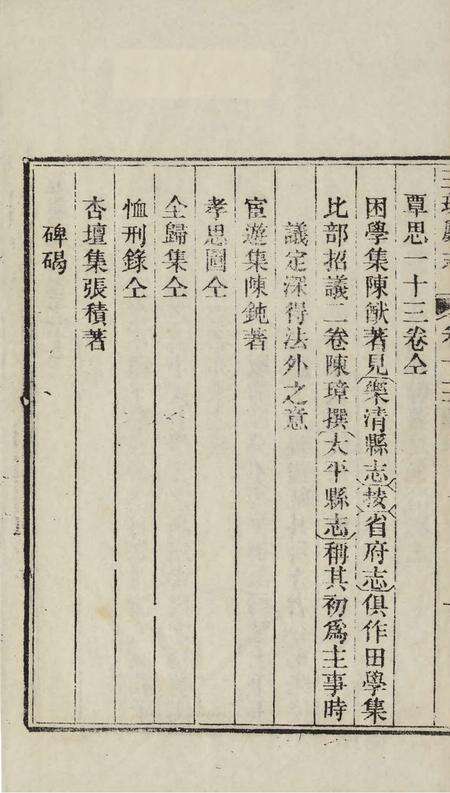 覃思一十三卷仝
困學集陳猷著見樂清縣志按省府志俱作田學集
比部招議二卷陳璋撰太平縣志稱其初爲主事時
議定深得法外之意
宦遊集陳鈍著
孝思圖仝
全歸集仝
恤刑錄仝
杏壇集張積著
碑碣